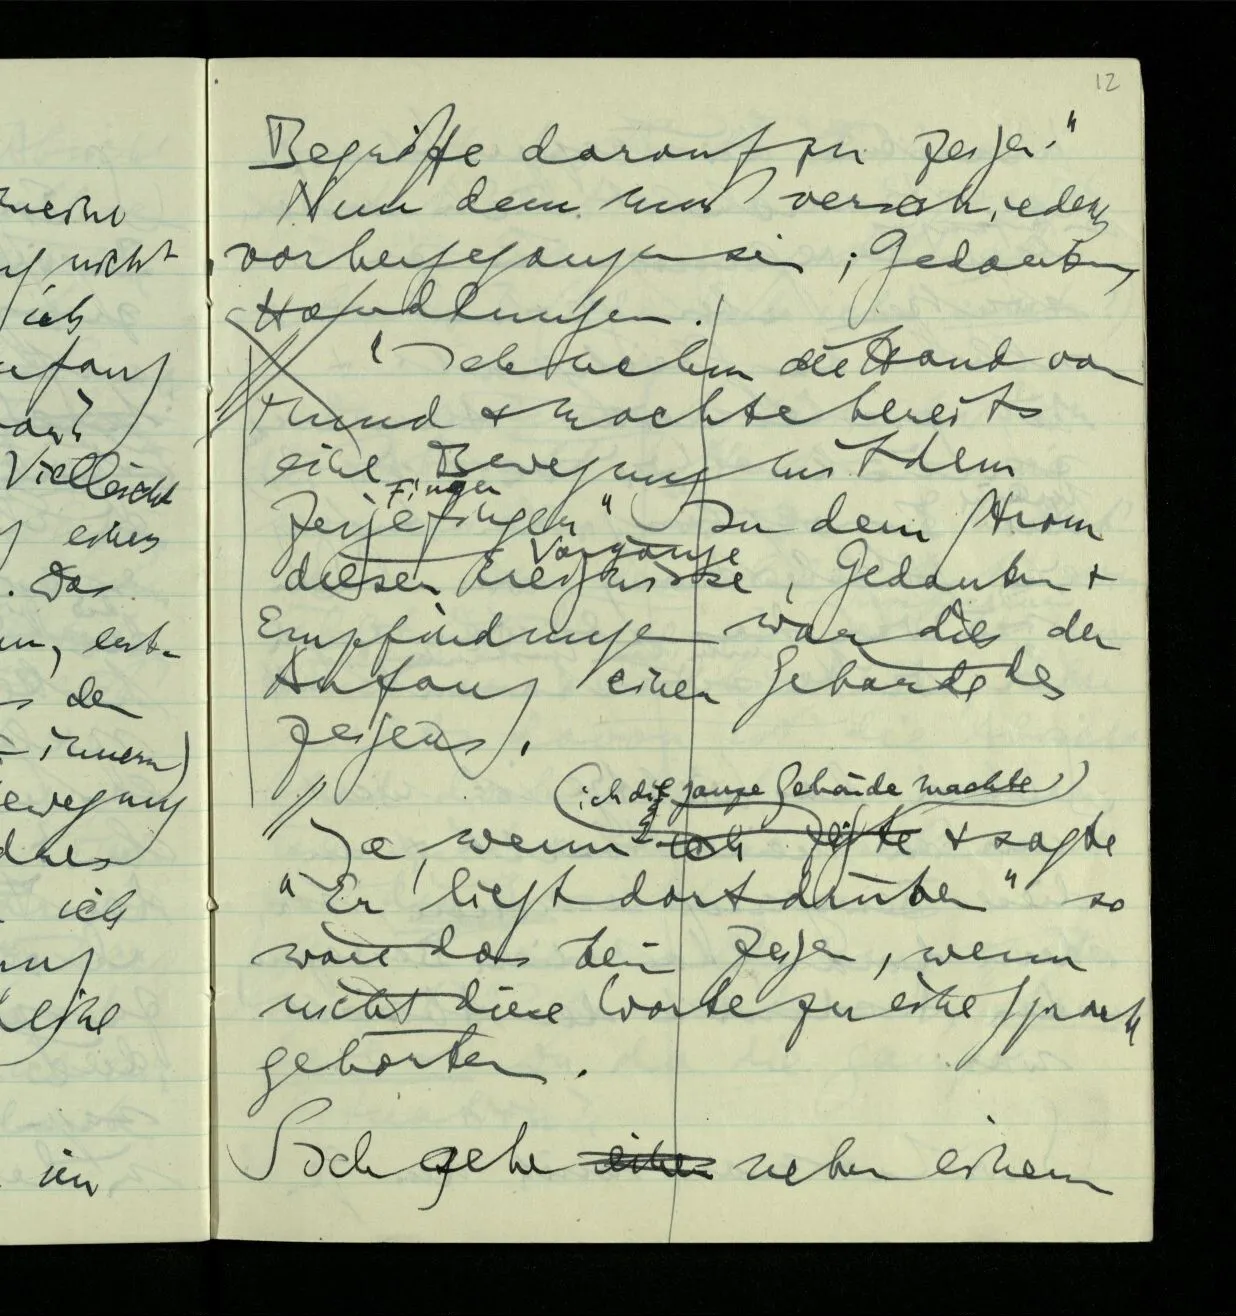 12
Begriffe darauf zu zeigen."
Nun dem muß verschiedenes
vorhergegangen sein; Gedanken,
Handlungen.
"Ich nehm die Hand vom
Mund & machte bereits
eine Bewegung mit dem
Finger
Zeigefinger" In dem Strom
Vorgänge
dieser Ereignisse, Gedanken +
Empfindungen war dies der
Anfang einer Gebärde des
Zeigens.
(ich die ganze Gebärde machte)
Ja, wenn ich zeigte + sagte
"Er liegt dort drüben" so
wäre das kein Zeigen, wenn
nicht diese Worte zu einer Sprache
gehörten.
Ich gehe einen neben einem
nicht
ich
Anfang
Vielleicht
eines
. Das
der
innern)
Bewegung
ich
eine
im